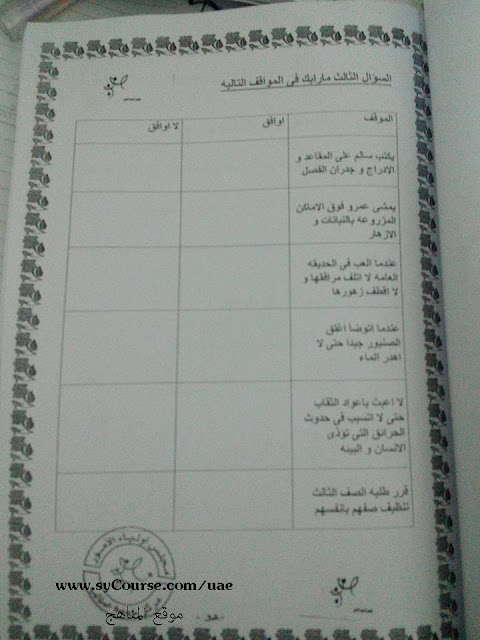 السؤال الثالث مارايك فى المواقف التاليه
الموقف
اوافق
لا اوافق
يكتب سالم على المقاعد و
الادراج و جدران الفصل
يمشى عمرو فوق الاماكن
المزروعه بالنباتات و
الازهار
عندما العب فى الحديقه
العامه لا اتلف مرافقها و
لا اقطف زهورها
عندما اتوضأ اغلق
الصنبور جيدا حتى لا
اهدر الماء
لا اعبث باعواد الثقاب
حتى لا اتسبب فى حدوث
الحرائق التى تؤذى
الانسان و البيئه
قرر طلبه الصف الثالث
تنظيف صفهم بانفسهم
مجلس أولياء الأمور
www.syCourse.com/uae
موقع المناهج